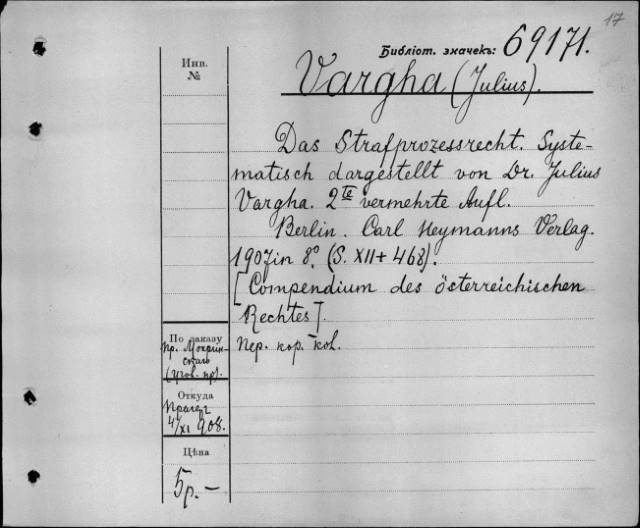 17
Библіот. значекъ: 69171.
Инв.
№
Vargha (Julius).
Das Strafprozessrecht. Syste-
matisch dargestellt von Dr. Julius
Vargha. 2te vermehrte Aufl.
Berlin. Carl Heymanns Verlag.
1907 in 8°. (S. XII + 468).
[Compendium des österreichischen
Rechtes].
По заказу
пр. Мокрин-
скаго
(угов. пр).
Пер. кор. - кол.
Откуда
4/XI 908.
Цѣна
5р. —